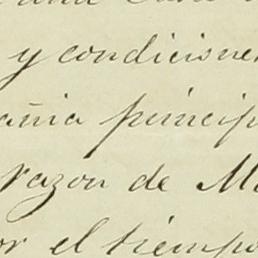 y condiciones
añia princip
razon de M
or el tiempo